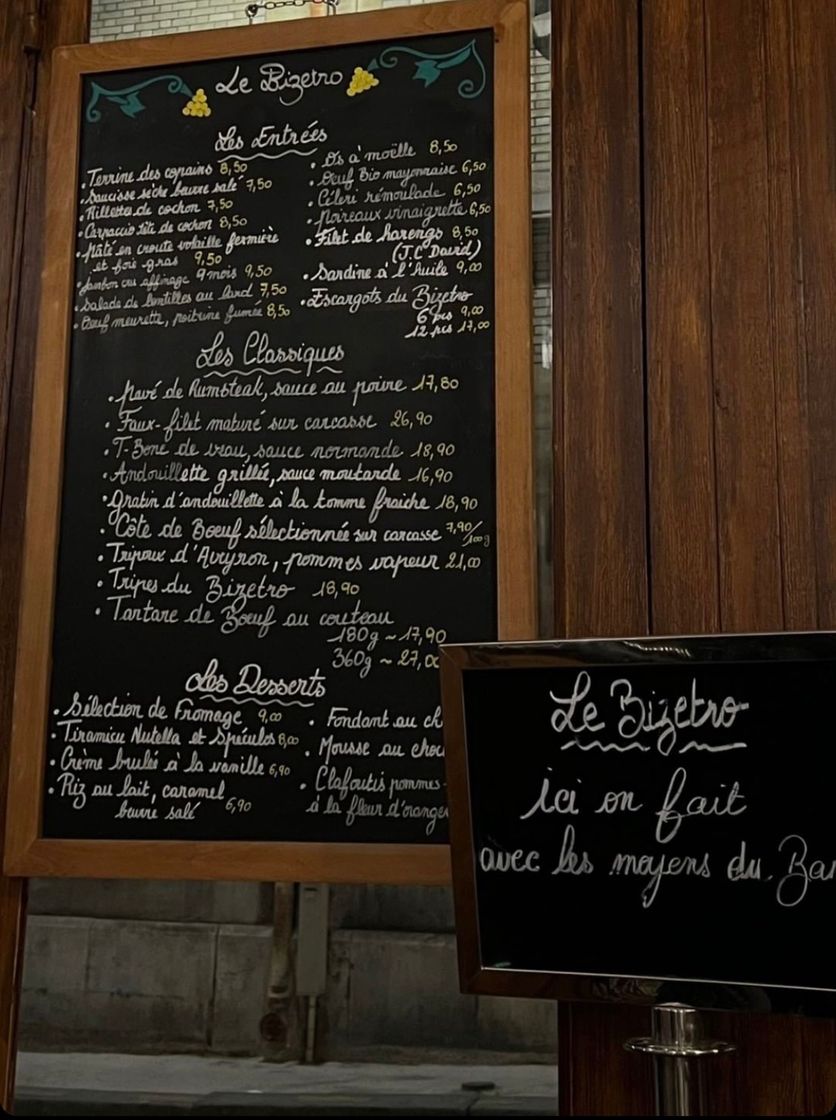 Le Bizetro
Les Entrées
• Terrine des copains 8,50
• Saucisse sèche beurre salé 7,50
• Rillettes de cochon 7,50
• Carpaccio tête de cochon 8,50
• Pâté en croute volaille fermière
et foie gras 9,50
• Jambon cru affinage 9 mois 9,50
• Salade de lentilles au lard 7,50
• Oeuf meurette, poitrine fumée 8,50
• Os à moëlle 8,50
• Oeuf Bio mayonnaise 6,50
• Céleri rémoulade 6,50
• Poireaux vinaigrette 6,50
• Filet de harengs 8,50
(J.C David)
• Sardine à l'huile 9,00
• Escargots du Bizetro
6 pcs 9,00
12 pcs 17,00
Les Classiques
• Pavé de Rumsteak, sauce au poivre 17,80
• Faux-filet maturé sur carcasse 26,90
• T-Bone de veau, sauce normande 18,90
• Andouillette grillée, sauce moutarde 16,90
• gratin d'andouillette à la tomme fraiche 18,90
• Côte de Boeuf sélectionnée sur carcasse 7,90/100g
• Tripoux d'Aveyron, pommes vapeur 21,00
• Tripes du Bizetro 18,90
• Tartare de Boeuf au couteau
180g ~ 17,90
360g ~ 27,00
Les Desserts
• Sélection de Fromage 9,00
• Tiramisu Nutella et Spéculos 8,00
• Crème brulée à la vanille 6,90
• Riz au lait, caramel
beurre salé 6,90
• Fondant au ch
• Mousse au choc
• Clafoutis pommes-
à la fleur d'orange
Le Bizetro
ici on fait
avec les moyens du Bar